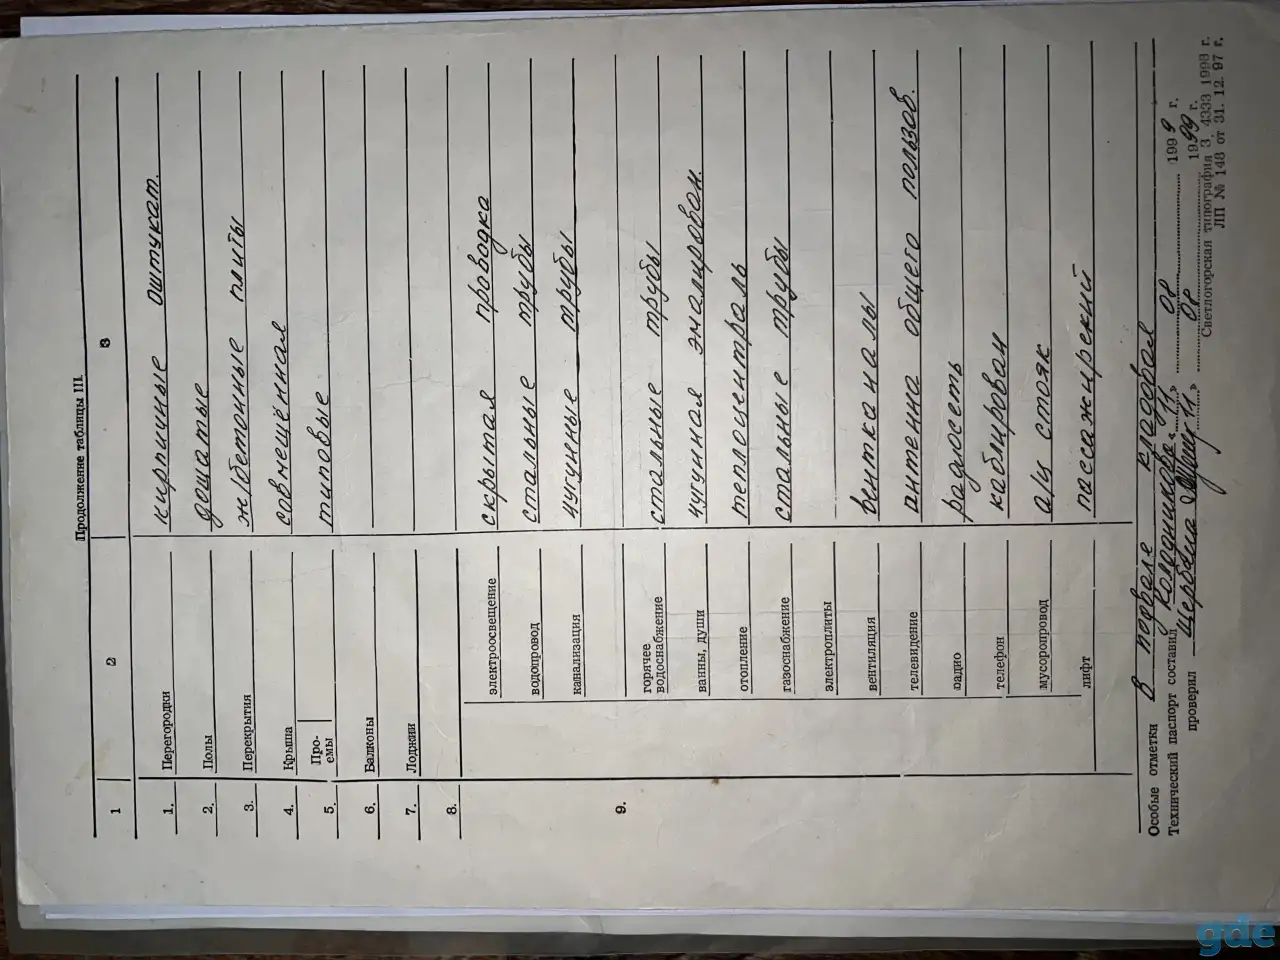 Продолжение таблицы III.
1 2 3
1. Перегородки кирпичные оштукат.
2. Полы дощатые
3. Перекрытия ж/бетонные плиты
4. Крыша совмещённая
5. Проемы типовые
6. Балконы
7. Лоджии
8.
9.
электроосвещение скрытая проводка
водопровод стальные трубы
канализация чугунные трубы
горячее водоснабжение стальные трубы
ванны, души чугунная эмалирован.
отопление теплоцентраль
газоснабжение стальные трубы
электроплиты
вентиляция вентканалы
телевидение антенна общего пользов.
радио радиосеть
телефон кабелирован
мусоропровод а/ц стояк
лифт пассажирский
Особые отметки В подвале кладовая
Технический паспорт составил „11" 08 1999 г.
проверил Щербина „11" 08 1999 г.
Светлогорская типография З. 4333 1998 г.
ЛП № 148 от 31. 12. 97 г.
gde